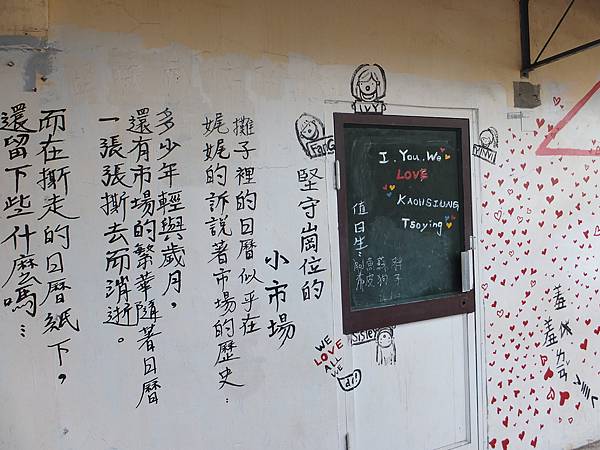 堅守崗位的
小市場
攤子裡的日曆似乎在
娓娓的訴說著市場的歷史…
多少年輕與歲月，
還有市場的繁華隨著日曆
一張張撕去而消逝。
而在撕走的日曆紙下，
還留下些什麼嗎…
IVY
FanG
I. You. We
LOVE
KAOHSIUNG
Tsoying
值日生：
WE
LOVE
ALL